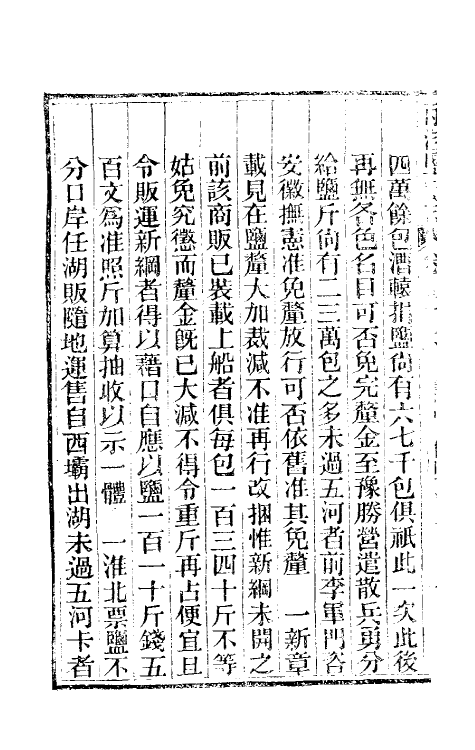 四萬餘包潛轅捐鹽尚有六七千包俱祇此一次此後
再無各色名目可否免完釐金至豫勝營遣散兵勇分
給鹽斤尚有二三萬包之多未過五河者前李軍門咨
安徽撫憲准免釐放行可否依舊准其免釐　一新章
載見在鹽釐大加裁減不准再行改捆惟新綱未開之
前該商販已裝載上船者俱每包一百三四十斤不等
姑免究懲而釐金既已大減不得令重斤再占便宜且
令販運新綱者得以藉口自應以鹽一百一十斤錢五
百文爲准照斤加算抽收以示一體　一淮北票鹽不
分口岸任湖販隨地運售自西壩出湖未過五河卡者